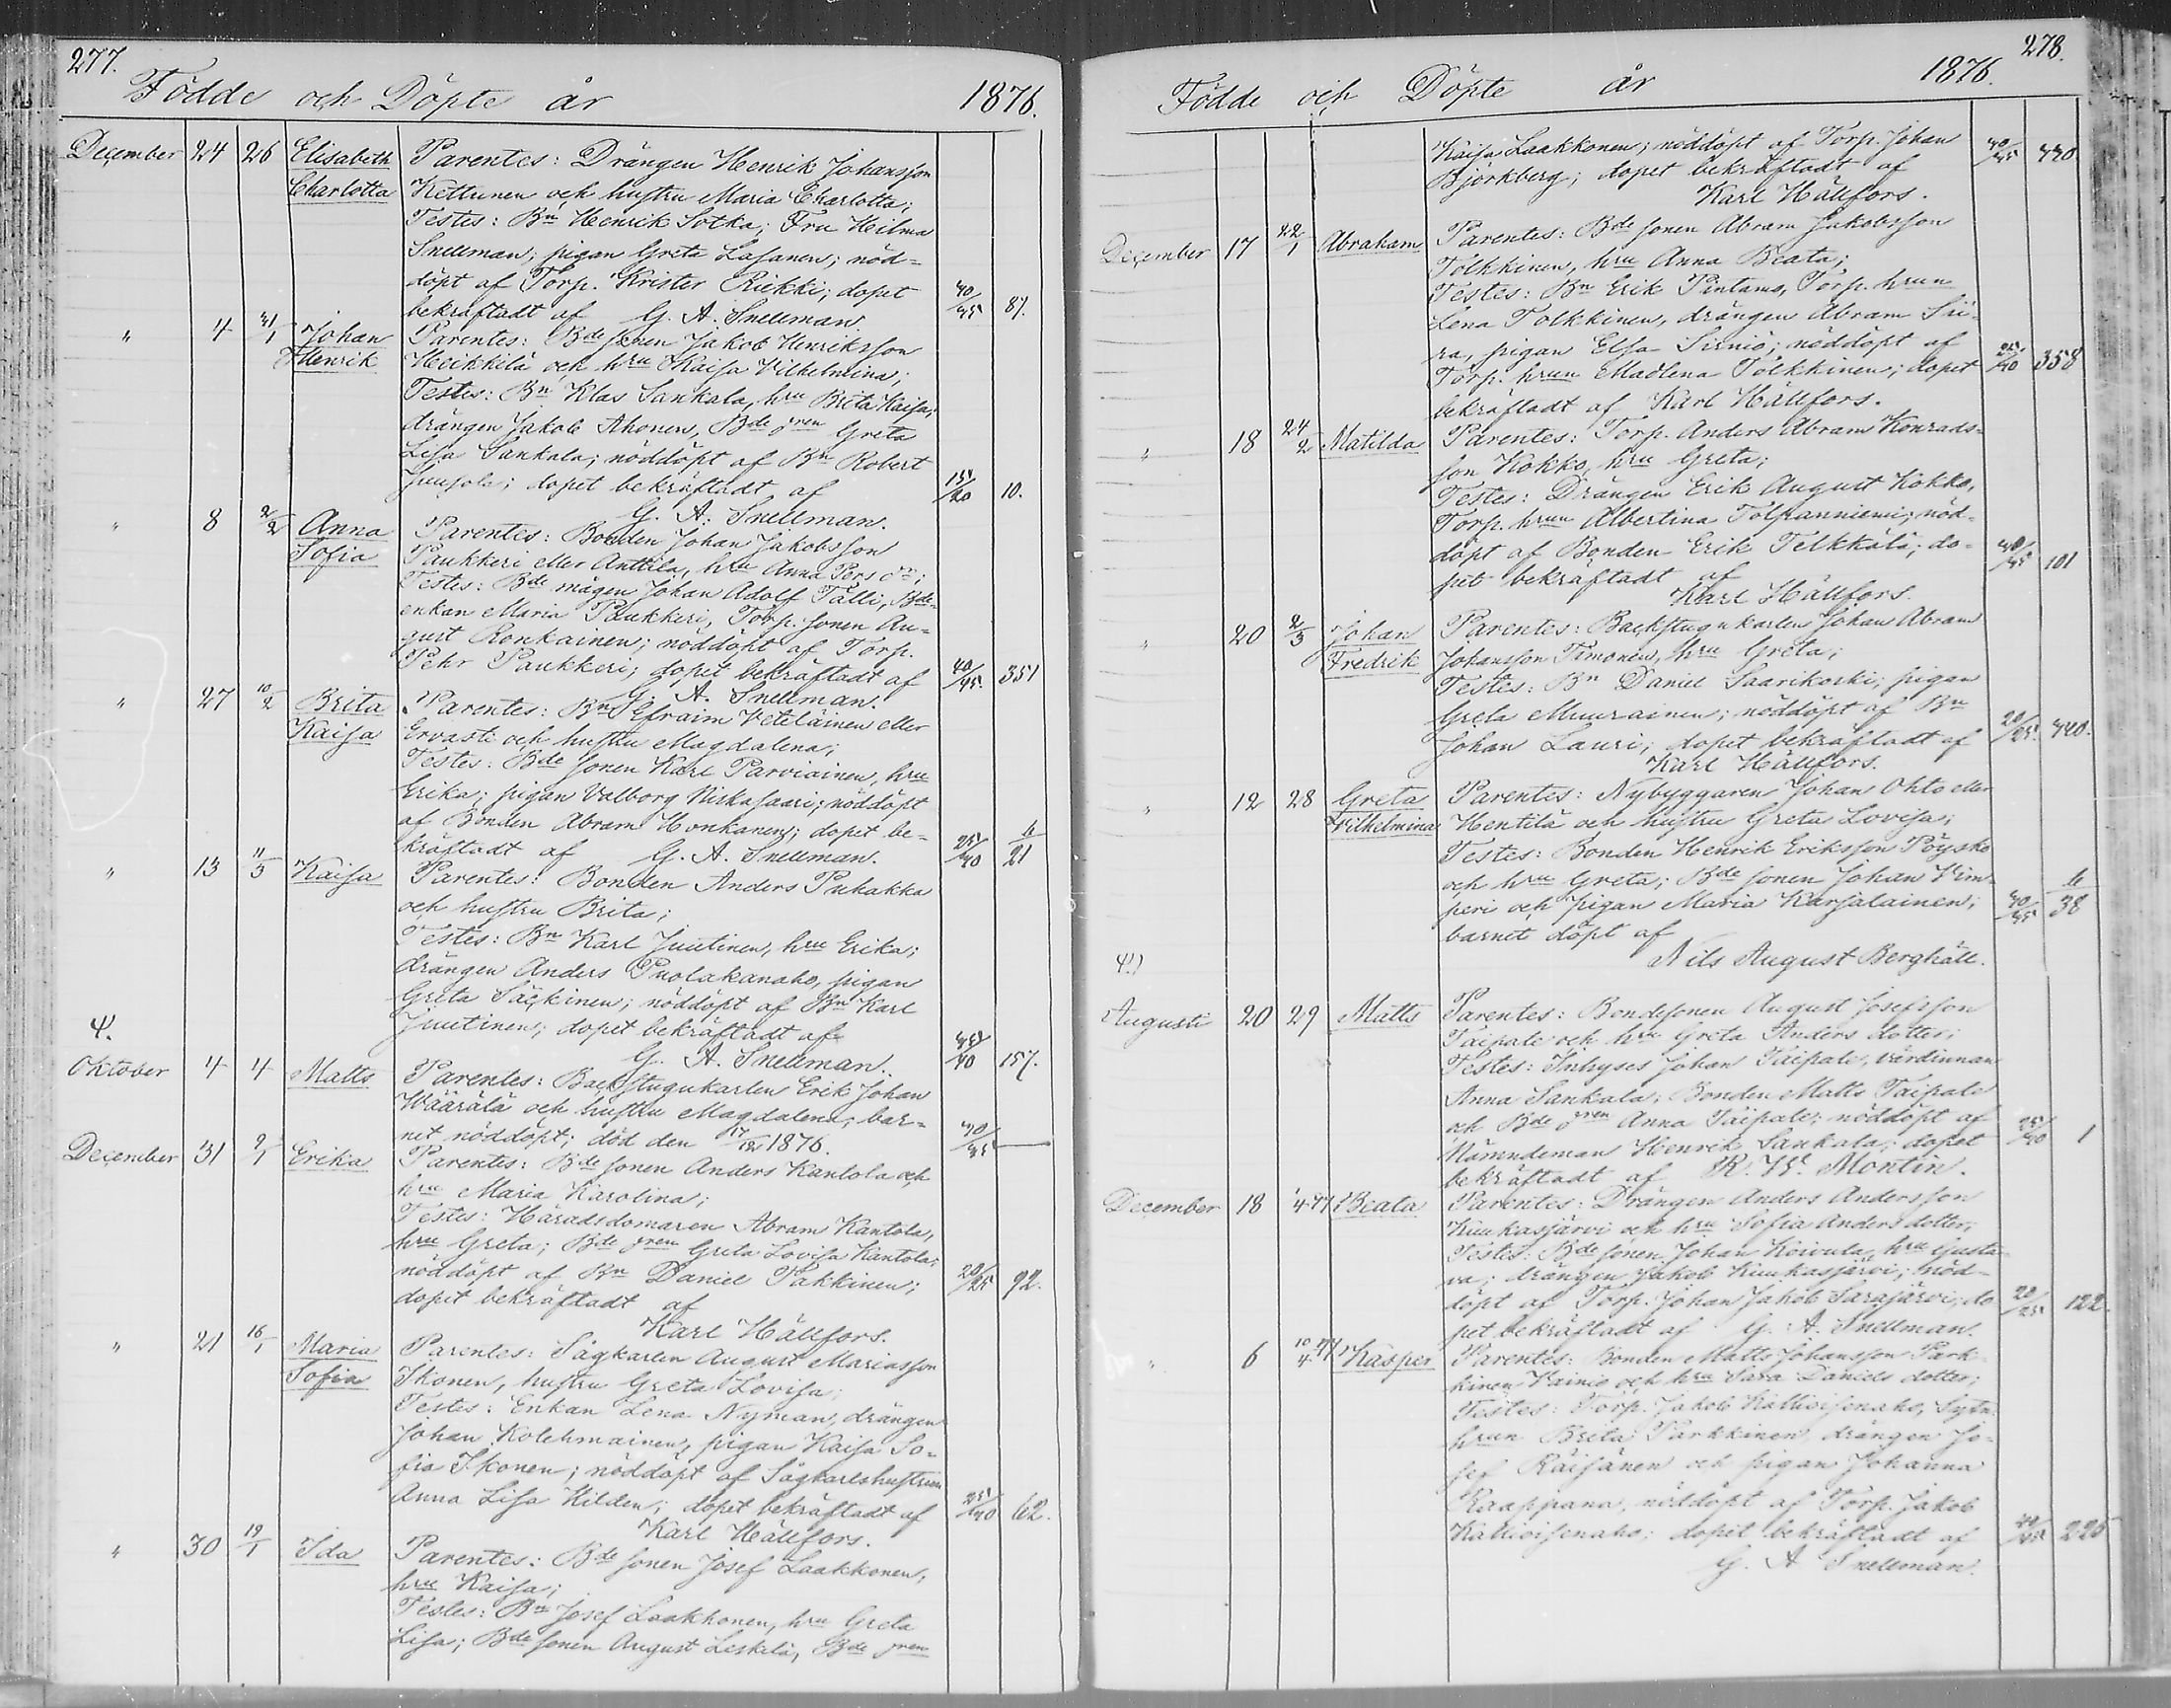 277.
Födde och Döpte år 1876.
December 24 26 Elisabeth Parentes: Drängen Henrik Johansson
Charlotta Kettunen och hustru Maria Charlotta;
Testes: Bn Henrik Sotka; Fru Hilma
Snellman; pigan Greta Lasanen; nöd-
döpt af Torp. Krister Riekki; dopet 40/45 87.
bekräftadt af G. A. Snellman.
" 4 31/1 Johan Parentes: Bde sonen Jakob Henriksson
Henrik Heikkilä och hru Kaisa Vilhelmina;
Testes: Bn Klas Sankala, hru Brita Kaisa;
drängen Jakob Ahonen, Bde Greta
Lisa Sankala; nöddöpt af Bn Robert
Juusola; dopet bekräftadt af 15/20 10.
G. A. Snellman.
" 8 2/2 Anna Parentes: Bonden Johan Jakobsson
Sofia Paukkeri eller Anttila, hru Anna Pers dr;
Testes: Bde mågen Johan Adolf Tälli, Bde-
enkan Maria Paukkeri, Torp. sonen Au-
gust Ronkainen; nöddöpt af Torp.
Pehr Paukkeri; dopet bekräftadt af 40/45. 351
G. A. Snellman.
" 27 10/2 Brita Parentes: Bn Efraim Veteläinen eller
Kaisa Ervasti och hustru Magdalena;
Testes: Bde sonen Karl Parviainen, hru
Erika; pigan Valborg Niskasaari; nöddöpt
af Bonden Abram Honkanen; dopet be-
kräftadt af G. A. Snellman. 25/40 21
" 13 11/3 Kaisa Parentes: Bonden Anders Puhakka
och hustru Brita;
Testes: Bn Karl Juutinen, hru Erika;
drängen Anders Puolakanaho, pigan
Greta Säckinen; nöddöpt af Bn Karl
Juutinen; dopet bekräftadt af
G. A. Snellman. 35/40 157.
Ψ.
Oktober 4 4 Matts Parentes: Backstugukarlen Erik Johan
Wäärälä och hustru Magdalena; bar-
net nöddöpt; död den 17/12 1876. 30/35
December 31 9/1 Erika Parentes: Bde sonen Anders Kantola och
hru Maria Karolina;
Testes: Häradsdomaren Abram Kantola,
hru Greta; Bde Greta Lovisa Kantola;
nöddöpt af Bn Daniel Pakkinen; 20/25 92.
dopet bekräftadt af
Karl Hällfors.
" 21 16/1 Maria Parentes: Sågkarlen August Mariasson
Sofia Ikonen, hustru Greta Lovisa;
Testes: Enkan Lena Nyman, drängen
Johan Kolehmainen, pigan Kaisa So-
fia Ikonen; nöddöpt af Sågkarlshustrun
Anna Lisa Hilden; dopet bekräftadt af 25/40 62.
Karl Hällfors.
" 30 19/1 Ida Parentes: Bde sonen Josef Laakkonen,
hru Kaisa;
Testes: Bn Josef Laakkonen, hru Greta
Lisa; Bde sonen August Leskelä, Bde
278.
Födde och Döpte år 1876.
Kaisa Laakkonen; nöddöpt af Torp. Johan 40/45 440
Björkberg; dopet bekräftadt af
Karl Hällfors.
December 17 22/1 Abraham Parentes: Bde sonen Abram Jakobsson
Tolkkinen, hru Anna Beata;
Testes: Bn Erik Pintamo, Torp. hrun
Lena Tolkkinen, drängen Abram Sii-
ra, pigan Elsa Sirniö; nöddöpt af
Torp. hrun Madlena Tolkkinen; dopet 358
bekräftadt af Karl Hällfors.
" 18 24/2 Matilda Parentes: Torp. Anders Abram Konrads-
son Kokko, hru Greta;
Testes: Drängen Erik August Kokko,
Torp. hrun Albertina Tolpanniemi; nöd-
döpt af Bonden Erik Telkkälä; do- 40/45 101
pet bekräftadt af
Karl Hällfors.
" 20 2/3 Johan Parentes: Backstugukarlen Johan Abram
Fredrik Johansson Timonen, hru Greta;
Testes: Bn Daniel Saarikoski; pigan
Greta Muurainen; nöddöpt af Bn
Johan Lauri; dopet bekräftadt af 20/25. 440.
Karl Hällfors.
" 12 28 Greta Parentes: Nybyggaren Johan Ohto eller
Vilhelmina Hentilä och hustru Greta Lovisa;
Testes: Bonden Henrik Eriksson Pöyskö
och hru Greta; Bde sonen Johan Vim-
peri och pigan Maria Karjalainen; 40/45 38
barnet döpt af
Nils August Berghäll.
Ψ.)
Augusti 20 29 Matts Parentes: Bondesonen August Josefsson
Taipale och hru Greta Anders dotter;
Testes: Inhyses Johan Taipale, värdinnan
Anna Sankala; Bonden Matts Taipale
och Bde Anna Taipale; nöddöpt af
Nämndeman Henrik Sankala; dopet 25/40 1
bekräftadt af R. W. Montin.
December 18 4/4 77 Beata Parentes: Drängen Anders Andersson
Kuukasjärvi och hru Sofia Anders dotter;
Testes: Bde sonen Johan Koivula, hru Gusta-
va; drängen Jakob Kuukasjärvi; nöd-
döpt af Torp. Johan Jakob Sarajärvi; do 20/25 122.
pet bekräftadt af G. A. Snellman.
" 6 10/4 77 Kasper Parentes: Bonden Matts Johansson Park-
kinen Vainio och hru Sara Daniels dotter;
Testes: Torp. Jakob Kallioisenaho, Sytn.
hrun Brita Parkkinen, drängen Jo-
sef Räisänen och pigan Johanna
Raappana, nöddöpt af Torp. Jakob
Kallioisenaho; dopet bekräftadt af 225
G. A Snellman.